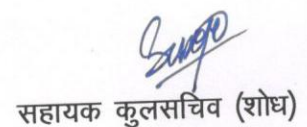 सहायक कुलसचिव (शोध)